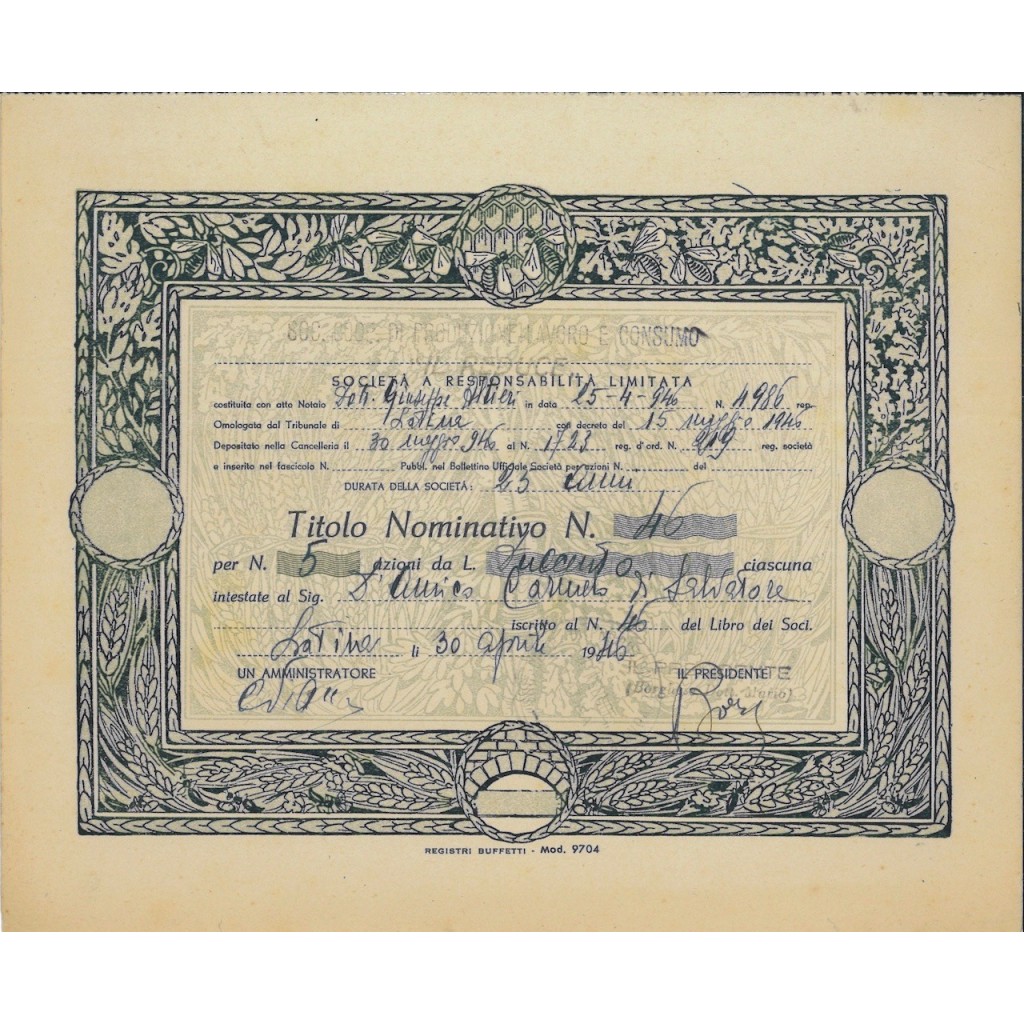 SOC. COOP. DI PRODUZIONE LAVORO E CONSUMO
IL REDUCE
SOCIETÀ A RESPONSABILITÀ LIMITATA
costituita con atto Notaio Dott. Giuseppe Altieri in data 25-4-946 N. 4986 rep.
Omologata dal Tribunale di Latina con decreto del 15 maggio 1946
Depositato nella Cancelleria il 30 maggio 946 al N. 1723 reg. d'ord. N. 919 reg. società
e inserito nel fascicolo N. Pubbl. nel Bollettino Ufficiale Società per azioni N. del
DURATA DELLA SOCIETÀ: 25 anni
Titolo Nominativo N. 46
per N. 5 azioni da L. Duecento ciascuna
intestate al Sig. D'Amico Carmelo di Salvatore
iscritto al N. 46 del Libro dei Soci.
Latina li 30 aprile 1946
UN AMMINISTRATORE IL PRESIDENTE
IL PRESIDENTE
Dott. Mario)
REGISTRI BUFFETTI - Mod. 9704